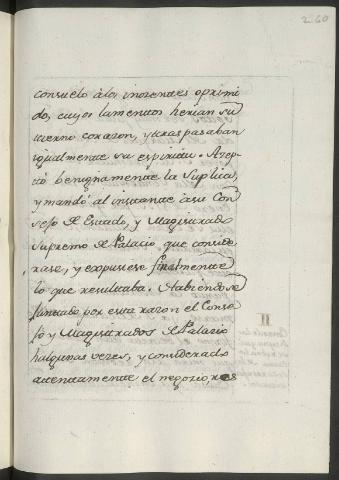 260
consuelo àlos inocentes oprimi
do, cuyos lamentos herian su
tierno corazon, y traspasaban
igualmente su espiritu. Azep
tó benignamente la Suplica,
y mandó al instante à su Con
sejo de Estado, y Magistrado
Supremo de Palacio que conside
rase, y expusiese finalmente
lo que resultaba. Habiendose
juntado por esta razon el Conse
jo y Magistrados de Palacio
halgunas vezes, y considerado
atentamente el negozio, res